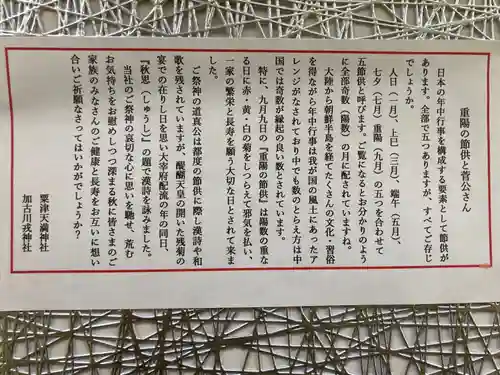 重陽の節供と菅公さん
日本の年中行事を構成する要素として節供が
あります。全部で五つありますが、すべてご存じ
でしょうか。
人日（一月）、上巳（三月）、端午（五月）、
七夕（七月）、重陽（九月）の五つを合わせて
五節供と呼びます。ご覧になるとお分かりのよう
に全部奇数（陽数）の月に配されていますね。
大陸から朝鮮半島を経てたくさんの文化・習俗
を得ながら年中行事は我が国の風土にあったア
レンジがなされており中でも数のとらえ方は中
国では奇数が縁起の良い数とされています。
特に、九月九日の『重陽の節供』は陽数の重な
る日に赤・黄・白の菊をしつらえて邪気を払い、
一家の繁栄と長寿を願う大切な日とされて来ま
した。
ご祭神の道真公は都度の節供に際し漢詩や和
歌を残されていますが、醍醐天皇の開いた残菊の
宴での在りし日を思い大宰府配流の年の同日、
『秋思（しゅうし）』の題で漢詩を詠みました。
当社のご祭神の哀切な心に思いを馳せ、荒む
お気持ちをお慰めしつつ深まる秋に皆さまのご
家族のみなさんのご健康と長寿をお互いに想い
合いご祈願なさってはいかがでしょうか？
粟津天満神社
加古川戎神社